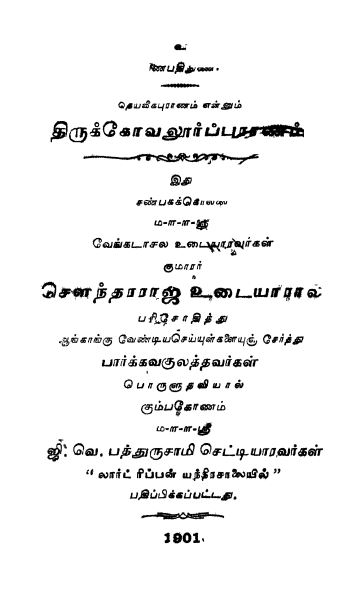 உ
கணபதிதுணை.
தெய்வீகபுராணம் என்னும்
திருக்கோவலூர்ப்புராணம்
இது
சண்பகக்கொல்லை
ம-ள-ள-ஸ்ரீ
வேங்கடாசல உடையாரவர்கள்
குமாரர்
சௌந்தரராஜ உடையாரால்
பரிசோதித்து
ஆங்காங்கு வேண்டியசெய்யுள்களையுஞ் சேர்த்து
பார்க்கவகுலத்தவர்கள்
பொருளுதவியால்
கும்பகோணம்
ம-ள-ள-ஸ்ரீ
ஜி. வெ. பத்துருசாமி செட்டியாரவர்கள்
“லார்ட் ரிப்பன் யந்திரசாலையில்”
பதிப்பிக்கப்பட்டது.
1901.